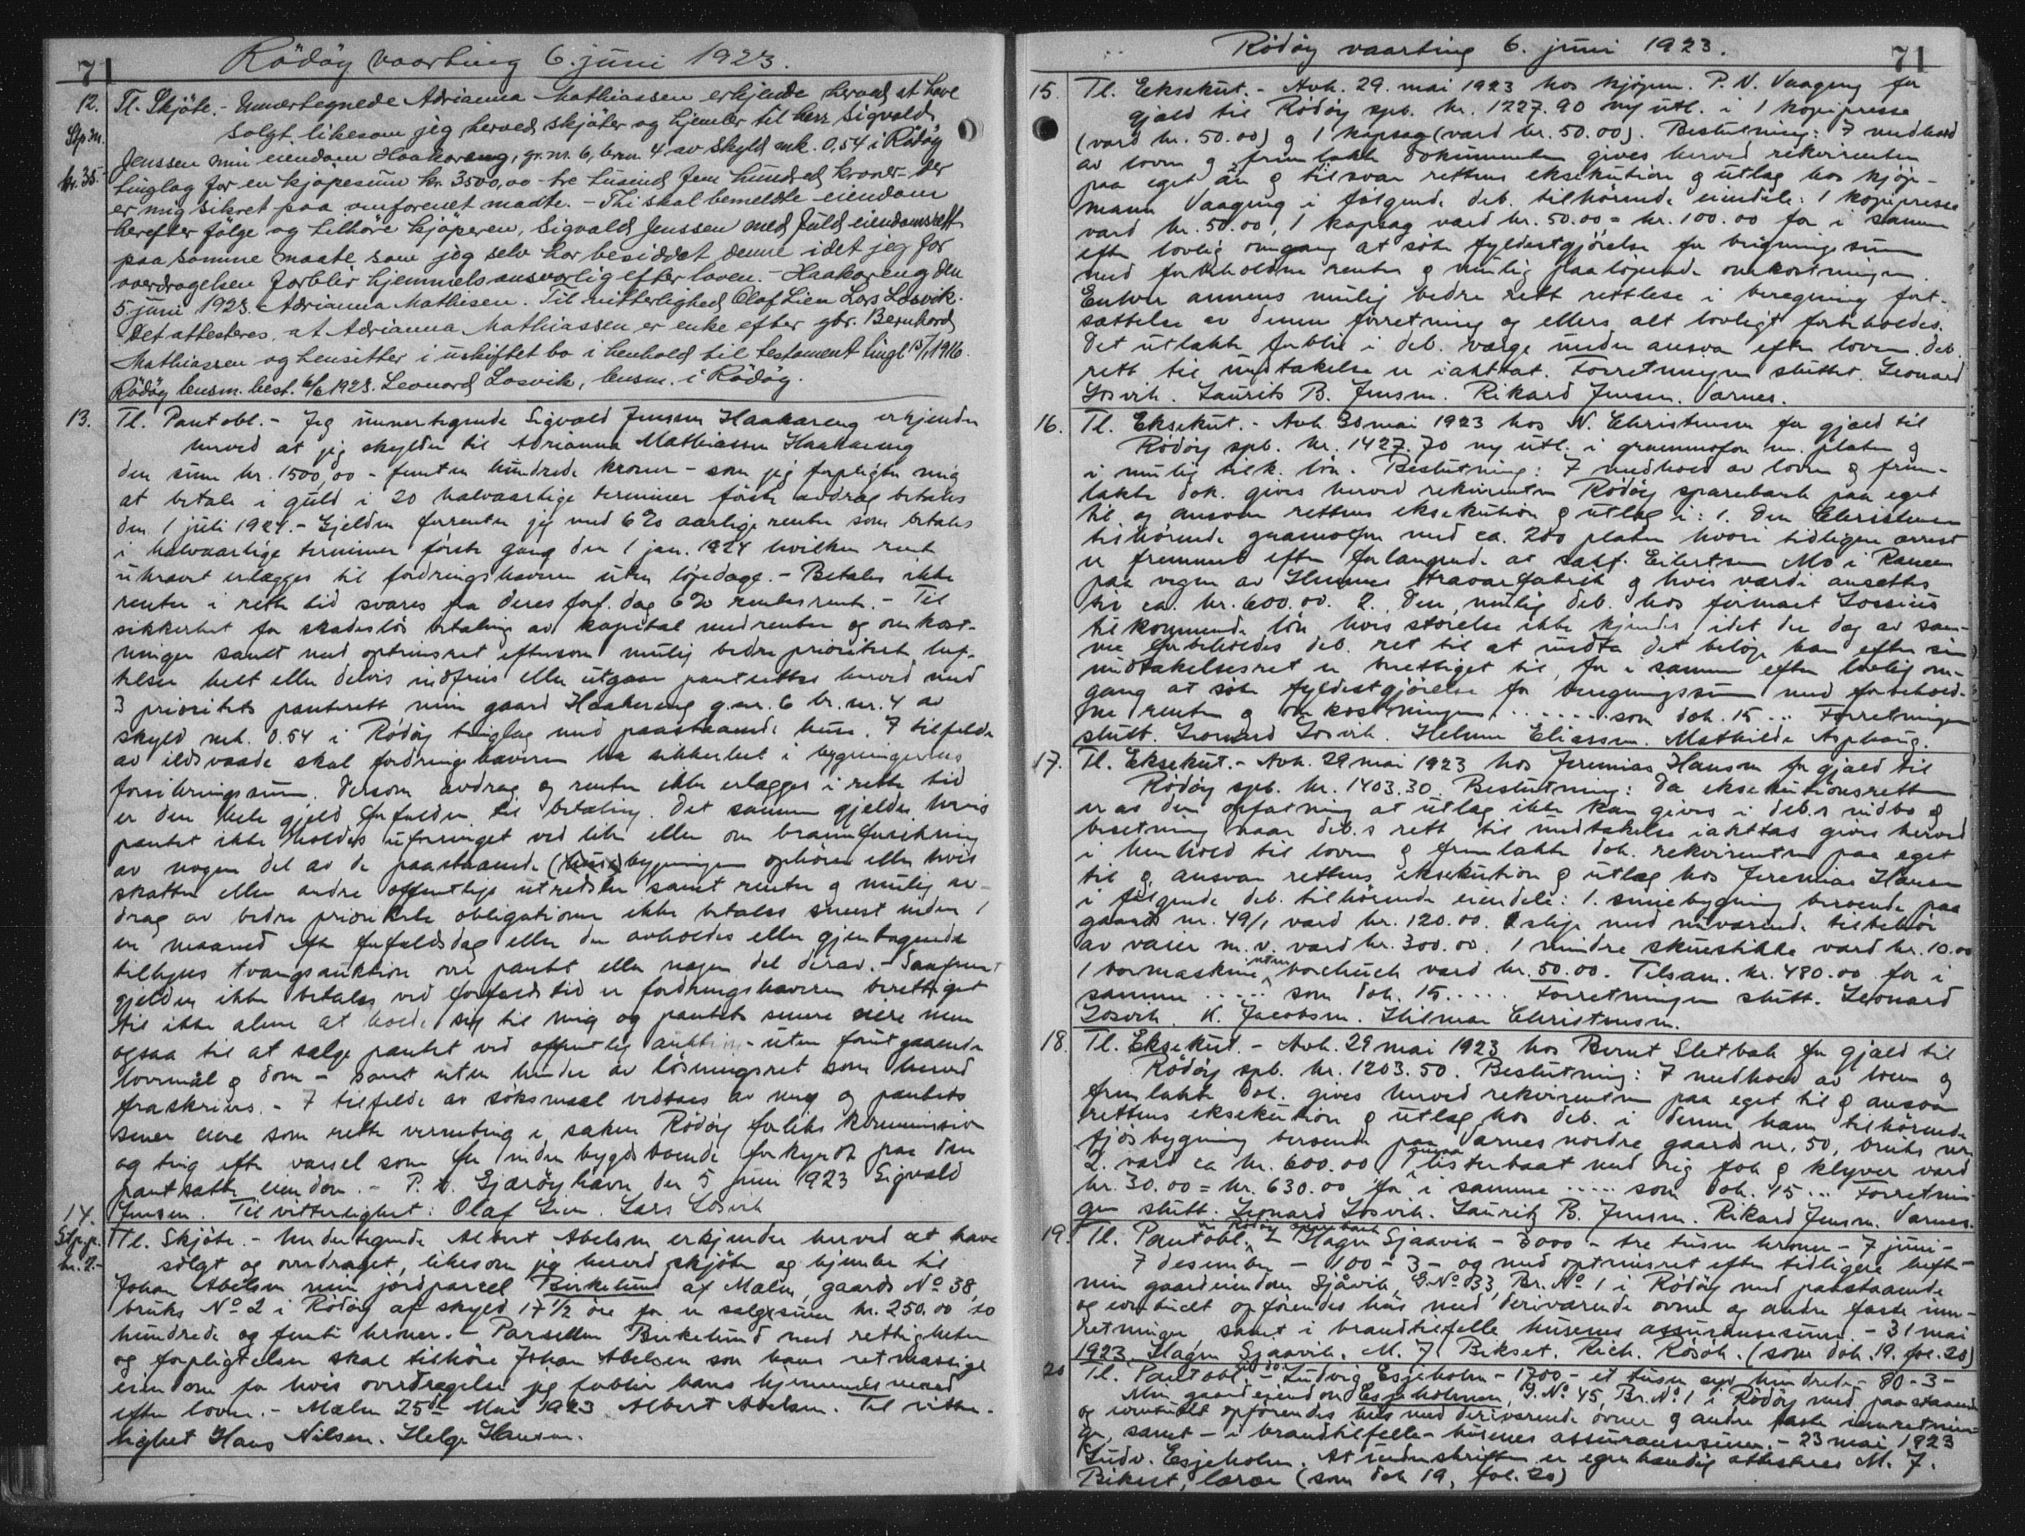 71
Rödöy vaarting 6. juni 1923.
12.
Tl. Skjöte. - Undertegnede Adrianna Mathiassen erkjende herved at have
Stp. m.
solgt likesom jeg herved skjöter og hjemler til herr Sigvald
kr. 35.-
Jenssen min eiendom Haakareng, gr. nr. 6, brnr. 4 av skyld mk. 0.54 i Rödöy
tinglag for en kjöpesum kr. 3500,00 - tre tusind fem hundred kroner - der
er mig sikret paa omforenet maate. - Thi skal bemeldte eiendom
herefter fölge og tilhöre kjöperen, Sigvald Jenssen med fuld eiendomsrett
paa samme maate som jeg selv har besiddet denne idet jeg for
overdragelsen forblir hjemmels ansvarlig efter loven. - Haakareng den
5. juni 1923. Adrianna Mathisen. Til vitterlighed Olaf Lien Lars Losvik.
Det attesteres at Adrianna Mathiassen er enke efter gbr. Bernhard
Mathiassen og hensitter i uskiftet bo i henhold til testament tingl. 1916.
Rödöy lensm. best. 6/6 1923. Leonard Losvik, lensm. i Rödöy.
13.
Tl. Pantobl. - Jeg undertegnede Sigvald Jenssen Haakareng erkjender
herved at jeg skylder til Adrianna Mathiassen Haakareng
den sum kr. 1500,00 - femten hundrede kroner - som jeg forpligter mig
at betale i guld i 20 halvaarlige terminer förste avdrag betales
den 1 juli 1924. - Gjelden forrenter jeg med 6 % aarlige renter som betales
i halvaarlige terminer förste gang den 1 jan. 1924 hvilken rente
ukrævet erlægges til fordringshaveren uten löpedage. - Betales ikke
renter i rette tid svares fra deres forf. dag 6 % rentesrente. - Til
sikkerhet for skadeslös betaling av kapital med renter og omkost-
ninger samt med optrinsret eftersom mulig bedre prioritet hef-
telser helt eller delvis indfries eller utgaar pantsættes herved med
3 prioritets panterett min gaard Haakareng g.nr. 6 br.nr. 4 av
skyld mk. 0.54 i Rödöy tinglag med paastaaende huse. I tilfelde
av ildsvaade skal fordringshaveren ha sikkerhet i bygningernes
forsikringssum. Dersom avdrag og renter ikke erlægges i rette tid
er den hele gjeld forfalden til betaling. Det samme gjelder hvis
pantet ikke holdes uforringet ved like eller om brannforsikring
av nogen del av de paastaaende (huse) bygninger ophörer eller hvis
skatter eller andre offentlige utredsler samt renter og mulig av-
drag av bedre prioriterte obligationer ikke betales senest inden 1
en maaned efter forfaldsdag eller der avholdes eller gjentagende
tillyses tvangsauktion over pantet eller nogen del derav. - Saafremt
gjelden ikke betales ved forfaldstid er fordringshaveren berettiget
til ikke alene at holde sig til mig og pantets senere eiere men
ogsaa til at sælge pantet ved offentlig auktion - uten forutgaaende
lovmål og dom - samt uten hinder av lösningsret som herved
fraskrives. - I tilfelde av söksmaal vedtas av mig og pantets
senere eiere som rette verneting i saken Rödöy forliks kommission
og ting efter varsel som for inden bygds boende forkyndt paa den
pantsatte eiendom. - P. t. Gjæröy havn den 5 juni 1923 Sigvald
Jensen. Til vitterlighet: Olaf Lien. Lars Losvik
14.
Tl. Skjöte. - Undertegnede Albert Abelsen erkjender herved at have
Stp. p.
kr. 2.-
solgt og overdraget, likesom jeg herved skjöter og hjemler til
Johan Abelsen min jordparcel Birkelund af Mæln, gaards No 38,
bruks No 2 i Rödöy af skyld 17 1/2 öre for en salgssum kr. 250.00 to
hundrede og femti kroner. - Parsellen Birkelund med rettigheter
og forpligtelser skal tilhöre Johan Abelsen som hans retmæssige
eiendom for hvis overdragelse jeg forblir hans hjemmelsmand
efter loven. - Mæln 25de Mai 1923 Albert Abelsen. Til vitter-
lighet Hans Nilsen. Helge Hansen.
Rödöy vaarting 6. juni 1923.
71
15.
Tl. Eksekut. - Avh. 29. mai 1923 hos kjöpm. P. N. Vaageng for
gjæld til Rödöy spb. kr. 1227.90 ny utl. i 1 kopipresse
(værd kr. 50.00) og 1 kapsag (værd kr. 50.00). Beslutning: I medhold
av loven og fremlakte dokumenter gives herved rekvirenten
paa eget än og tilsvar rettens eksekution og utlæg hos kjöp-
mann Vaageng i fölgende deb. tilhörende eiendele: 1 kopipresse
værd kr. 50.00, 1 kapsag værd kr. 50.00 = kr. 100.00 for i samme
efter lovlig omgang at söke fyldestgjörelse for beregningssum
med forbeholdne renter og mulig paalöpende omkostninger.
Enhver annens mulig bedre rett rettlese i beregning fort-
sættelse av denne forretning og ellers alt lovligt forbeholdes.
Det utlakte forblir i deb. værge under ansvar efter loven. deb.
rett til undtakelse er iakttat. Forretningen sluttet. Leonard
Losvik. Laurits B. Jensen. Rikard Jensen. Værnes.
16.
Tl. Eksekut. - Avh. 30 mai 1923 hos N. Christensen for gjæld til
Rödöy spb. kr. 1427.70 ny utl. i grammofon m. plater og
i mulig tilk. lön. Beslutning: I medhold av loven og frem-
lakte dok. gives herved rekvirenten Rödöy sparebank paa eget
til og ansvar rettens eksekution og utlæg i: 1. Den Christensen
tilhörende grammofon med ca. 200 plater hvori tidligere arrest
er fremmet efter forlangende at sakf. Eilertsen Mo i Ranen
paa vegne av Hemnes travarfabrik og hvis værdi ansættes
til ca. kr. 600.00. 2. Den mulig deb. hos firmaet Lossius
tilkommende lön hvis störelse ikke kjendes idet der dog av sam-
me forbeholdes deb. ret til at undta det belöp han efter sin
undtakelsesret er berettiget til, for i samme efter lovlig om-
gang at söke fyldestgjörelse for beregningssum med forbehold-
ne renter og omkostninger. ...... som dok. 15 ... Forretningen
slutt. Leonard Losvik. Helmer Eliassen. Mathilde Asphaug.
17.
Tl. Eksekut. - Avh. 29 mai 1923 hos Jeremias Hansen for gjæld til
Rödöy spb. kr. 1403.30. Beslutning: Da eksekutionsretten
er av den opfatning at utlæg ikke kan gives i deb.s indbo og
besetning naar deb.s rett til undtakelse iakttas gives herved
i henhold til loven og fremlakte dok. rekvirenten paa eget
til og ansvar rettens eksekution og utlæg hos Jeremias Hansen
i fölgende deb. tilhörende eiendele: 1. smiebygning beroende paa
gaards nr. 49/1 værd kr. 120.00. 1 slip med nuværende tilbehör
av vaier m. v. værd kr. 300.00. 1 mindre skruestikke værd kr. 10.00
1 bormaskine uten borchuck værd kr. 50.00. Tilsam. kr. 480.00 for i
samme ..... som dok. 15 ..... Forretningen slutt. Leonard
Losvik. K. Jacobsen. Hilmar Christensen.
18.
Tl. Eksekut. - Avh. 29 mai 1923 hos Bernt Sletbak for gjæld til
Rödöy spb. kr. 1203.50. Beslutning: I medhold av loven og
fremlakte dok. gives herved rekvirenten paa eget til og ansvar
rettens eksekution og utlæg hos deb. i denne ham tilhörende
fjösbygning beroende paa Værnes nordre gaards nr. 50, bruks nr.
2. værd ca kr. 600.00 1 listerbaat med rig fok og klyver værd
kr. 30.00 = kr. 630.00 for i samme ..... som dok. 15 ... Forretnin-
gen slutt. Leonard Losvik. Laurits B. Jensen. Rikard Jensen. Værnes.
19.
Tl. Pantobl. til Rödöy sparebank - Hagen Sjaavik - 3000 - tre tusen kroner - 7 juni -
7 desember - 100 - 3 - og med optrinsret efter tidligere hefte -
min gaardeiendom Sjåvik, G. No 33, Br. No 1 i Rödöy med paastaaende
og eventuelt opförendes hus med deriværende ovner og andre faste inn-
retninger samt i brandtilfelle husenes assuransesum. - 31 mai
1923 Hagen Sjaavik. M. J. Bekset. Rich. Rösok. (som dok. 19. fol. 20)
20
Tl. Pantobl. til do. - Ludvig Esjeholm - 1700 - et tusen syv hundrede - 80 - 3 -
Min gaardeiendom Esjeholmen, G. No 45, Br. No 1 i Rödöy med paastaaende
og eventuelt opförendes hus med deriværende ovner og andre faste innretnin-
ger, samt - i brandtilfelle - husenes assuransesum. - 23 mai 1923
Ludv. Esjeholm. At underskriften er egenhændig attesteres M. J.
Bekset, lærer (som dok 19, fol. 20)